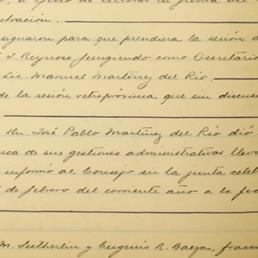 tración.
signaron para que presidiera la sesión a
S. Reynoso fungiendo como Secretario
Lic. Manuel Martínez del Río.
de la sesión retropróxima que sin discus
Sr. José Pablo Martínez del Río dió
ca de sus gestiones administrativas llev
informó al Consejo en la junta cele
de febrero del corriente año a la fec
M. Sutherlin y Eugenio R. Baeza, fueron